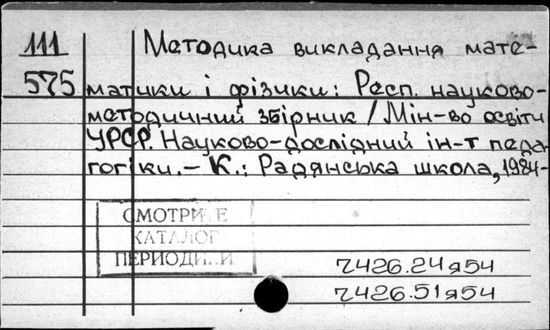 111 Методика викладання мате-
575 матики і фізики: Респ. науково-
методичний збірник / Мін-во освіти
УРСР. Науково-дослідний ін-т педа-
гогіки. – К.: Радянська школа, 1984-
СМОТРИТЕ
КАТАЛОГ
ПЕРИОДИКИ
7426.24я54
7426.51я54